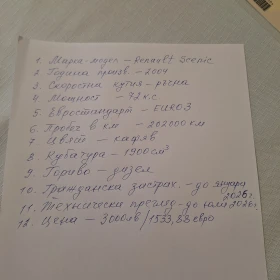 1. Марка-модел - Renault Scenic
2 Година произв. - 2004
3. Скоростна кутия - ръчна
4 Мощност - 72 к.с
5 Евростандарт - EURO3
6. Пробег в км - 202000 км
7 Цвят - кафяв
8. Кубатура - 1900 см³
9. Гориво - дизел
10. Гражданска застрах. - до януари 2026 г.
11. Технически преглед - до юли 2026 г.
12. Цена - 3000 лв / 1533,88 евро